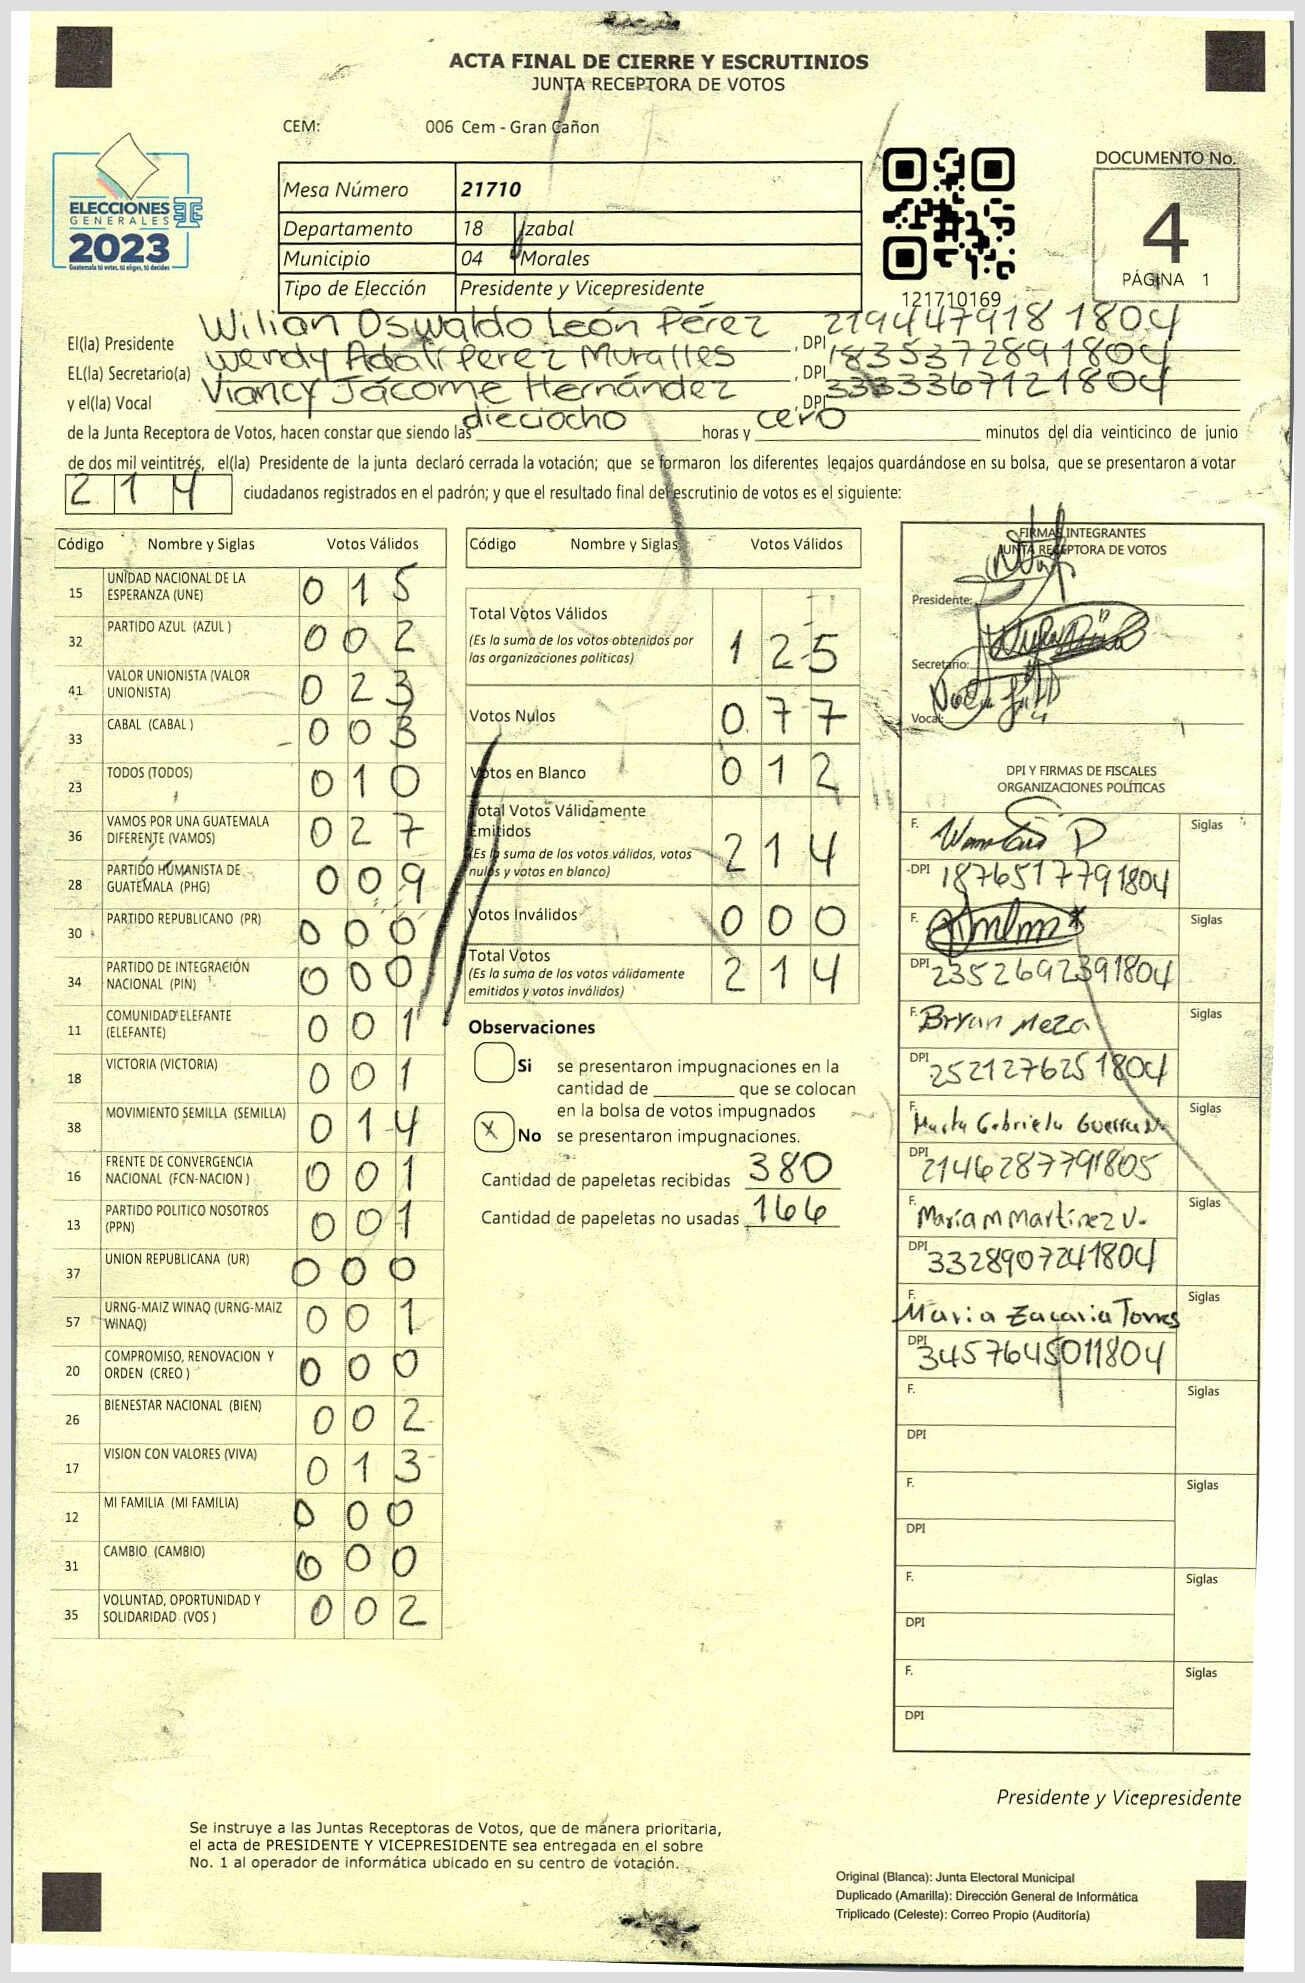 ACTA FINAL DE CIERRE Y ESCRUTINIOS
JUNTA RECEPTORA DE VOTOS
CEM: 006 Cem - Gran Cañon
ELECCIONES
GENERALES
2023
Guatemala tú votas, tú eliges, tú decides
Mesa Número 21710
Departamento 18 Izabal
Municipio 04 Morales
Tipo de Elección Presidente y Vicepresidente
121710169
DOCUMENTO No.
4
PÁGINA 1
El(la) Presidente Wilian Oswaldo León Pérez, DPI 2194479181804
EL(la) Secretario(a) Wendy Adali Perez Muralles, DPI 1835372891804
y el(la) Vocal Viancy Jácome Hernández, DPI 3333367121804
de la Junta Receptora de Votos, hacen constar que siendo las dieciocho horas y cero minutos del dia veinticinco de junio
de dos mil veintitrés, el(la) Presidente de la junta declaró cerrada la votación; que se formaron los diferentes legajos guardándose en su bolsa, que se presentaron a votar
214 ciudadanos registrados en el padrón; y que el resultado final del escrutinio de votos es el siguiente:
Código Nombre y Siglas Votos Válidos
15 UNIDAD NACIONAL DE LA ESPERANZA (UNE) 015
32 PARTIDO AZUL (AZUL ) 002
41 VALOR UNIONISTA (VALOR UNIONISTA) 023
33 CABAL (CABAL ) 003
23 TODOS (TODOS) 010
36 VAMOS POR UNA GUATEMALA DIFERENTE (VAMOS) 027
28 PARTIDO HUMANISTA DE GUATEMALA (PHG) 009
30 PARTIDO REPUBLICANO (PR) 000
34 PARTIDO DE INTEGRACIÓN NACIONAL (PIN) 000
11 COMUNIDAD ELEFANTE (ELEFANTE) 001
18 VICTORIA (VICTORIA) 001
38 MOVIMIENTO SEMILLA (SEMILLA) 014
16 FRENTE DE CONVERGENCIA NACIONAL (FCN-NACION ) 001
13 PARTIDO POLITICO NOSOTROS (PPN) 001
37 UNION REPUBLICANA (UR) 000
57 URNG-MAIZ WINAQ (URNG-MAIZ WINAQ) 001
20 COMPROMISO, RENOVACION Y ORDEN (CREO ) 000
26 BIENESTAR NACIONAL (BIEN) 002
17 VISION CON VALORES (VIVA) 013
12 MI FAMILIA (MI FAMILIA) 000
31 CAMBIO (CAMBIO) 000
35 VOLUNTAD, OPORTUNIDAD Y SOLIDARIDAD (VOS ) 002
Código Nombre y Siglas Votos Válidos
Total Votos Válidos 125
(Es la suma de los votos obtenidos por
las organizaciones políticas)
Votos Nulos 077
Votos en Blanco 012
Total Votos Válidamente
Emitidos 214
(Es la suma de los votos válidos, votos
nulos y votos en blanco)
Votos Inválidos 000
Total Votos 214
(Es la suma de los votos válidamente
emitidos y votos inválidos)
Observaciones
Si se presentaron impugnaciones en la
cantidad de ________ que se colocan
en la bolsa de votos impugnados
X No se presentaron impugnaciones.
Cantidad de papeletas recibidas 380
Cantidad de papeletas no usadas 166
FIRMAS INTEGRANTES
JUNTA RECEPTORA DE VOTOS
Presidente:
Secretario:
Vocal:
DPI Y FIRMAS DE FISCALES
ORGANIZACIONES POLÍTICAS
F. Siglas
DPI 1876517791804
F. Siglas
DPI 2352692391804
F. Bryan Meza Siglas
DPI 2521276251804
F. Marta Gabriela Guerra Siglas
DPI 2146287791805
F. María M Martínez V. Siglas
DPI 3328907241804
F. Maria Zacaria Torres Siglas
DPI 3457645011804
F. Siglas
DPI
F. Siglas
DPI
F. Siglas
DPI
F. Siglas
DPI
Presidente y Vicepresidente
Se instruye a las Juntas Receptoras de Votos, que de manera prioritaria,
el acta de PRESIDENTE Y VICEPRESIDENTE sea entregada en el sobre
No. 1 al operador de informática ubicado en su centro de votación.
Original (Blanca): Junta Electoral Municipal
Duplicado (Amarilla): Dirección General de Informática
Triplicado (Celeste): Correo Propio (Auditoría)